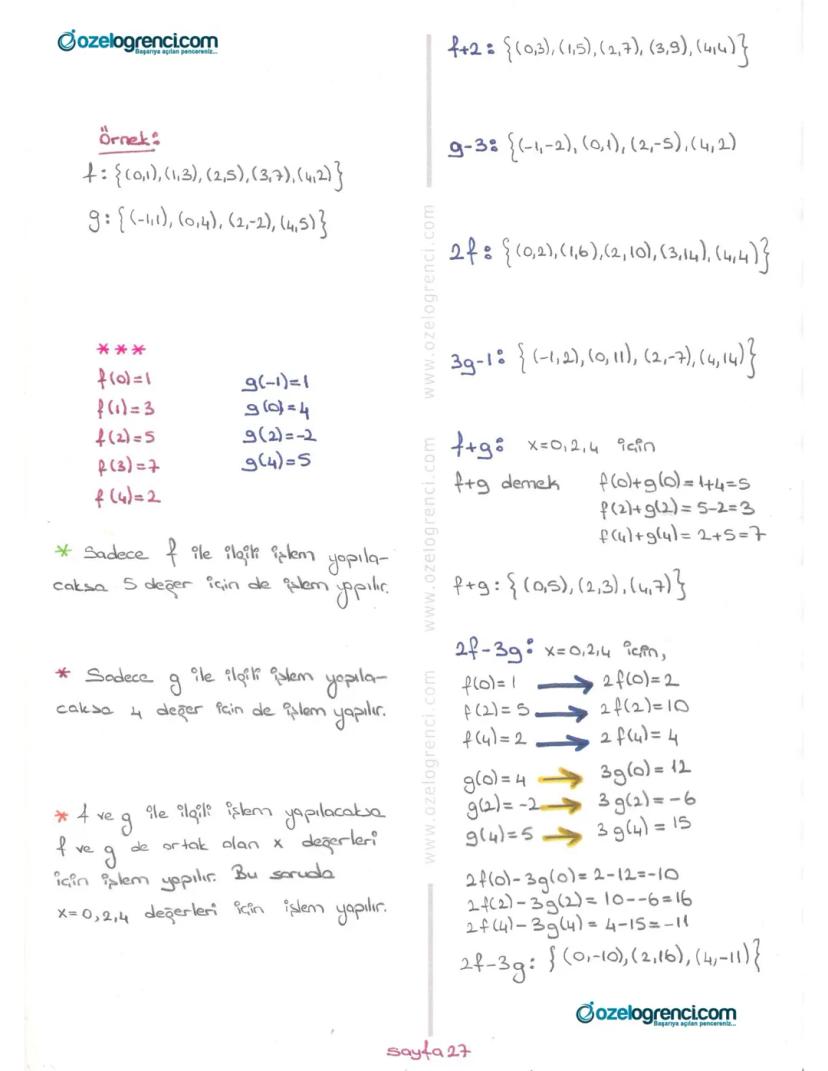 özelogrenci.com
Başarıya açılan pencereniz...
Örnek:
f: {(0,1), (1,3), (2,5), (3,7), (4,2)}
g: {(-1,1), (0,4), (2,-2), (4,5)}
***
f(0)=1 g(-1)=1
f(1)=3 g(0)=4
f(2)=5 g(2)=-2
f(3)=7 g(4)=5
f(4)=2
* Sadece f ile ilgili işlem yapıla-
caksa 5 değer için de işlem yapılır.
* Sadece g ile ilgili işlem yapıla-
caksa 4 değer için de işlem yapılır.
* f ve g ile ilgili işlem yapılacaksa
f ve g de ortak olan x değerleri
için işlem yapılır. Bu soruda
x=0,2,4 değerleri için işlem yapılır.
f+2: {(0,3), (1,5), (2,7), (3,9), (4,4)}
g-3: {(-1,-2), (0,1), (2,-5), (4,2)
2f: {(0,2), (1,6), (2,10), (3,14), (4,4)}
3g-1: {(-1,2), (0,11), (2,-7), (4,14)}
f+g: x=0,2,4 için
f+g demek f(0)+g(0)=1+4=5
f(2)+g(2)=5-2=3
f(4)+g(4)=2+5=7
f+g: {(0,5), (2,3), (4,7)}
2f-3g: x=0,2,4 için,
f(0)=1 → 2f(0)=2
f(2)=5 → 2f(2)=10
f(4)=2 → 2f(4)=4
g(0)=4 → 3g(0)=12
g(2)=-2 → 3g(2)=-6
g(4)=5 → 3g(4)=15
2f(0)-3g(0)=2-12=-10
2f(2)-3g(2)=10--6=16
2f(4)-3g(4)=4-15=-11
2f-3g: {(0,-10), (2,16), (4,-11)}
www.ozelogrenci.com
www.ozelogrenci.com
www.ozelogrenci.com
özelogrenci.com
Başarıya açılan pencereniz...
sayfa 27